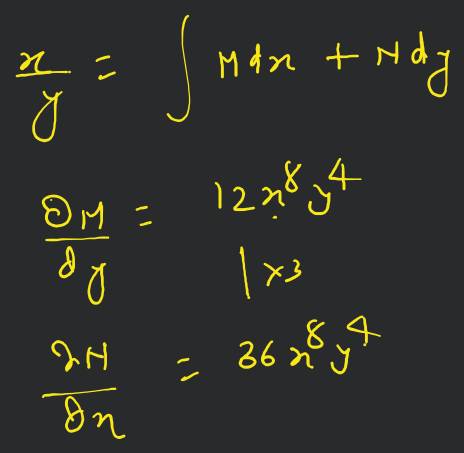 x/y = ∫ M dx + N dy
∂M/∂y = 12x⁸y⁴
1 x3
∂N/∂x = 36x⁸y⁴